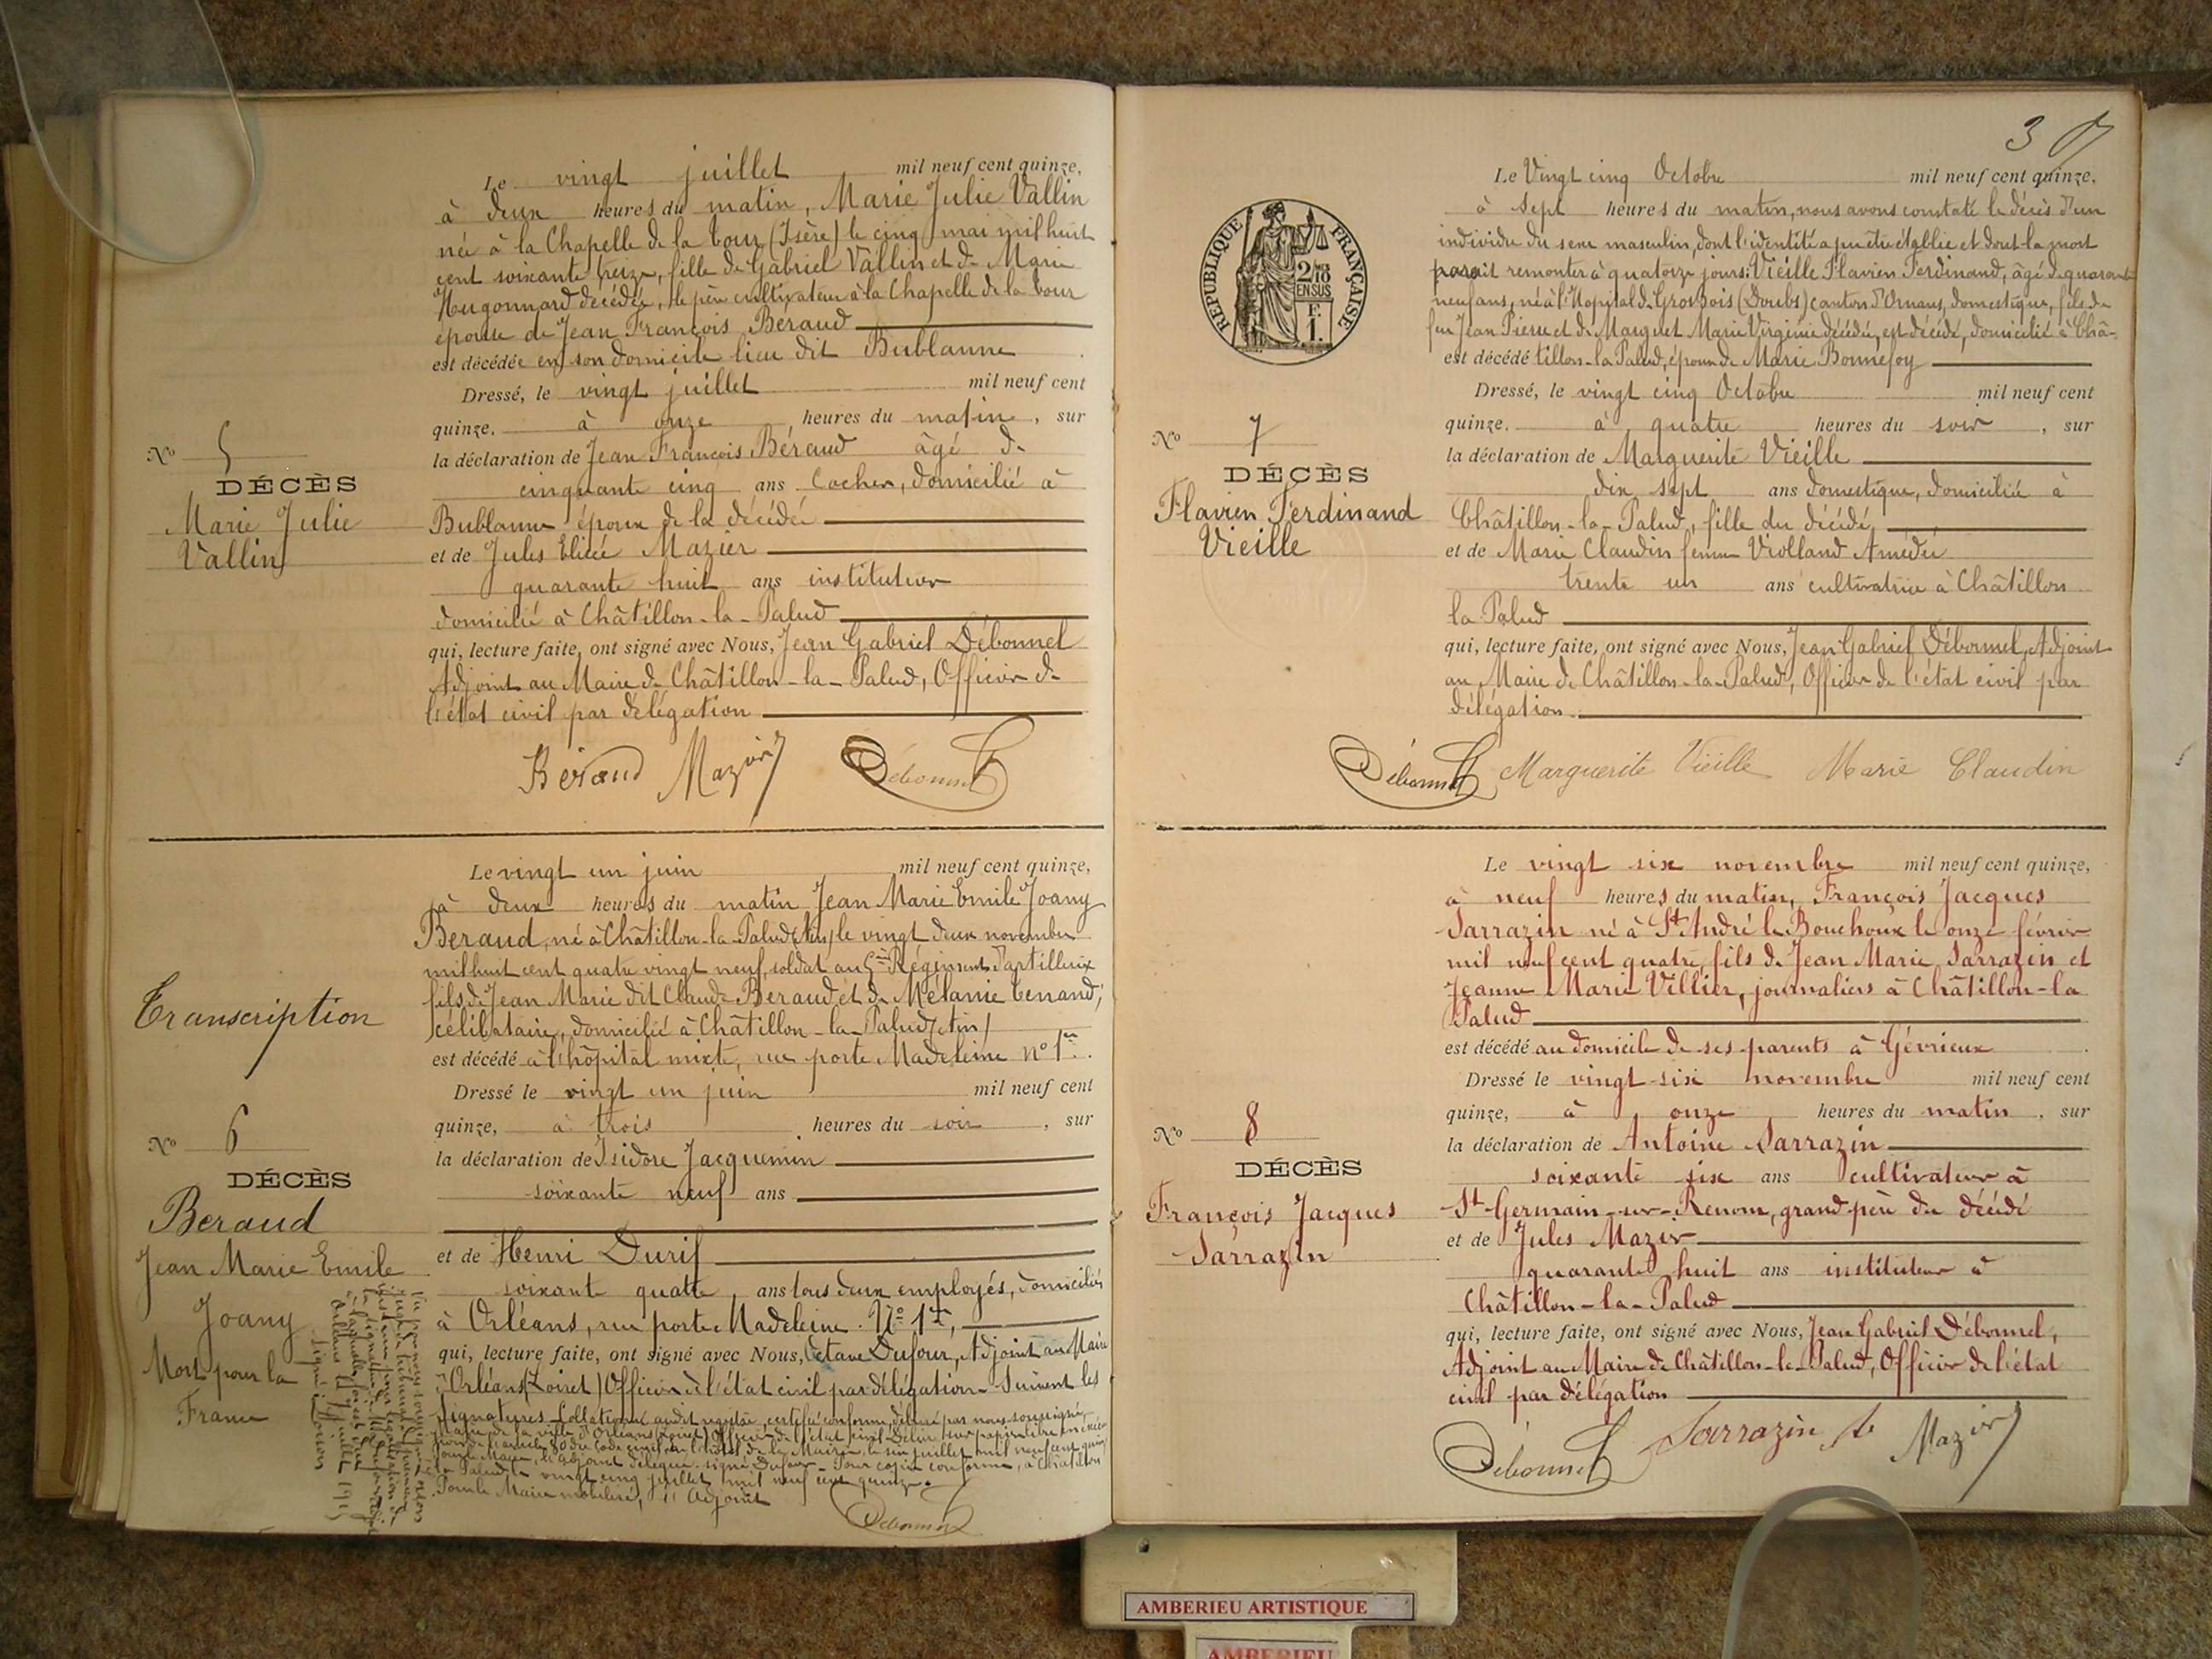 Le vingt juillet mil neuf cent quinze,
à deux heures du matin, Marie Julie Vallin
née à la Chapelle de la Tour (Isère) le cinq mai mil huit
cent soixante treize, fille de Gabriel Vallin et de Marie
Hugonnard décédée, le père cultivateur à la Chapelle de la Tour
épouse de Jean François Béraud
est décédée en son domicile lieu dit Bublanne
Dressé, le vingt juillet mil neuf cent
quinze, à onze heures du matin, sur
la déclaration de Jean François Béraud âgé de
cinquante cinq ans Cocher, domicilié à
Bublanne époux de la décédée
et de Jules Elisée Mazier
quarante huit ans instituteur
domicilié à Châtillon-la-Palud
qui, lecture faite, ont signé avec Nous, Jean Gabriel Débonnel
Adjoint au Maire de Châtillon-la-Palud, Officier de
l'état civil par délégation
Béraud Mazier Débonnel
No 5
DÉCÈS
Marie Julie
Vallin
Le vingt un juin mil neuf cent quinze,
à deux heures du matin Jean Marie Emile Joany
Beraud, né à Châtillon-la-Palud (Ain) le vingt deux novembre
mil huit cent quatre vingt neuf, soldat au 5me Régiment d'artillerie
fils de Jean Marie dit Claude Beraud et de Mélanie Tenand,
célibataire, domicilié à Châtillon-la-Palud (Ain)
est décédé à l'hôpital mixte, rue porte Madeleine no 1er.
Dressé le vingt un juin mil neuf cent
quinze, à trois heures du soir, sur
la déclaration de Isidore Jacquemin
soixante neuf ans
et de Henri Durif
soixante quatre, ans tous deux employés, domiciliés
à Orléans, rue porte Madeleine. No 1er,
qui, lecture faite, ont signé avec Nous, Octave Dufour, Adjoint au Maire
d'Orléans (Loiret) Officier de l'état civil par délégation. Suivent les
signatures. Collationné audit registre, certifié conforme, délivré par nous soussigné,
Maire de la ville d'Orléans (Loiret) Officier de l'état civil. Délivré sur papier libre en
de l'article 80 du Code civil, en l'hôtel de la Mairie, le six juillet mil neuf cent quinze
Pour le Maire, l'adjoint délégué. signé Dufour. Pour copie conforme, à Châtillon
la Palud le vingt cinq juillet mil neuf cent quinze.
Pour le Maire mobilisé, l'Adjoint
Débonnel
Transcription
No 6
DÉCÈS
Beraud
Jean Marie Emile
Joany
Mort pour la
France
3
RÉPUBLIQUE FRANÇAISE
2/10
EN SUS
F.
1.
Le Vingt cinq Octobre mil neuf cent quinze,
à sept heures du matin, nous avons constaté le décès d'un
individu du sexe masculin, dont l'identité a pu être établie et dont la mort
parait remonter à quatorze jours: Vieille Flavien Ferdinand, âgé de quarante
neuf ans, né à l'Hopital du Gros Bois (Doubs) canton d'Ornans, domestique, fils de
feu Jean Pierre et de Marguet Marie Virginie décédée, est décédé, domicilié à Châ-
est décédé tillon-la-Palud, époux de Marie Bonnefoy
Dressé, le vingt cinq Octobre mil neuf cent
quinze, à quatre heures du soir, sur
la déclaration de Marguerite Vieille
dix sept ans domestique, domiciliée à
Châtillon-la-Palud, fille du décédé,
et de Marie Claudin femme Violland Amédée
trente un ans cultivatrice à Châtillon
la Palud
qui, lecture faite, ont signé avec Nous, Jean Gabriel Débonnel, Adjoint
au Maire de Châtillon-la-Palud, Officier de l'état civil par
délégation.
Débonnel Marguerite Vieille Marie Claudin
No 7
DÉCÈS
Flavien Ferdinand
Vieille
Le vingt six novembre mil neuf cent quinze,
à neuf heures du matin, François Jacques
Sarrazin né à St André le Bouchoux le onze février
mil neuf cent quatre, fils de Jean Marie Sarrazin et
Jeanne Marie Villier, journaliers à Châtillon-la
Palud
est décédé au domicile de ses parents à Gévrieux
Dressé le vingt-six novembre mil neuf cent
quinze, à onze heures du matin, sur
la déclaration de Antoine Sarrazin
soixante six ans cultivateur à
St Germain-sur-Renom, grand père du décédé
et de Jules Mazier
quarante huit ans instituteur à
Châtillon-la-Palud
qui, lecture faite, ont signé avec Nous, Jean Gabriel Débonnel,
Adjoint au Maire de Châtillon-la-Palud, Officier de l'état
civil par délégation
Débonnel Sarrazin Mazier
No 8
DÉCÈS
François Jacques
Sarrazin
AMBERIEU ARTISTIQUE
AMBERIEU